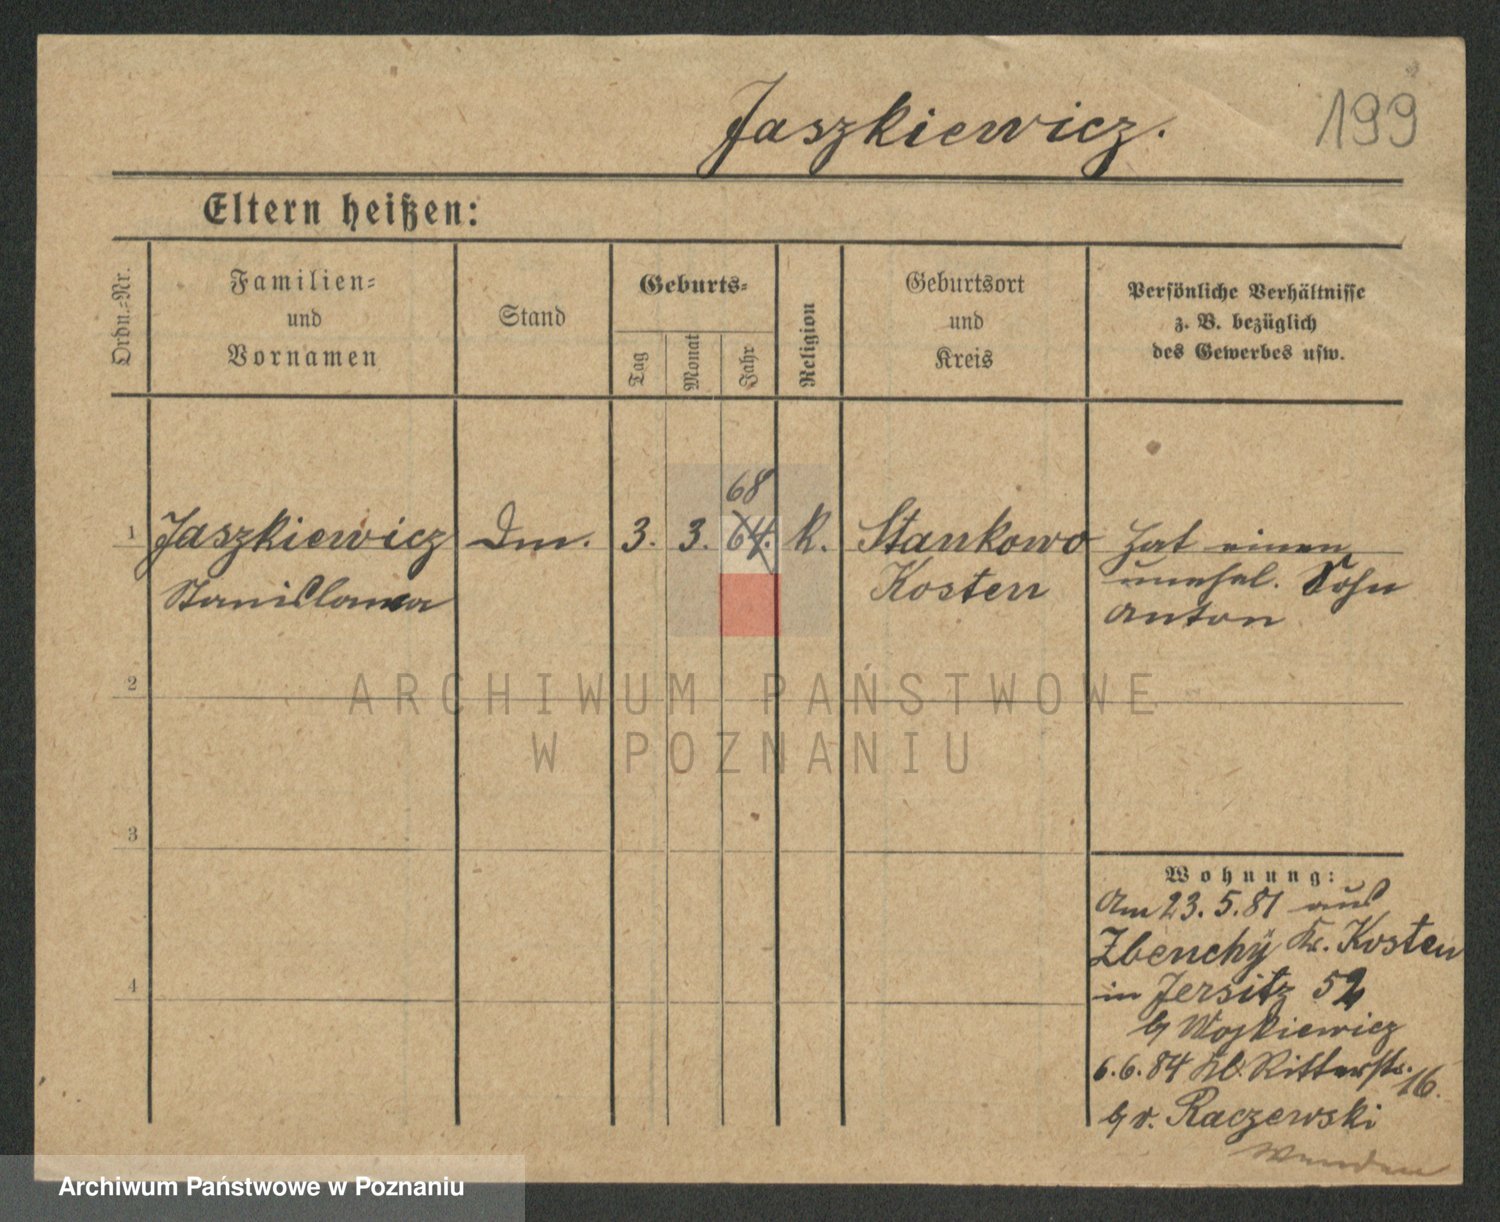 Jaszkiewicz.
199
Eltern heißen:
Ordn.-Nr.
Familien-
und
Vornamen
Stand
Geburts-
Tag
Monat
Jahr
Religion
Geburtsort
und
Kreis
Persönliche Verhältnisse
z. B. bezüglich
des Gewerbes usw.
68
1 Jaszkiewicz Dm. 3. 3. 64. k. Stankowo hat einen
Stanislawa Kosten unehel. Sohn
Anton
2
ARCHIWUM PAŃSTWOWE
W POZNANIU
3
Wohnung:
Am 23.5.81 aus
Zbenchy Kr. Kosten
4
in Jersitz 52
b/ Wojkiewicz
6.6.84 Kl. Ritterstr. 16.
b/ v. Raczewski
Wenden
Archiwum Państwowe w Poznaniu